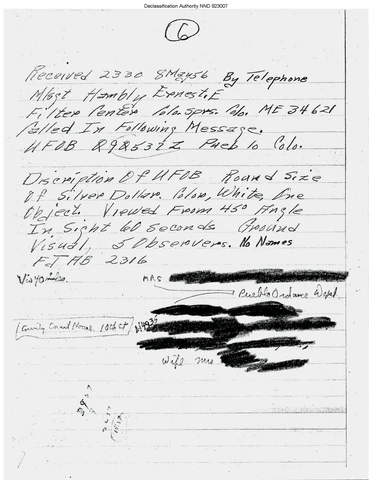 Declassification Authority NND 923007
6
Received 2330 8May56 By Telephone
M/Sgt Hambly Ernest. E
Filter Center Colo. Sprs. Colo. ME 34621
Called In Following Message.
UFOB Pueblo Colo.
Discription Of UFOB Round Size
Of Silver Dollar. Color, White, One
Object. Viewed From 45° Angle
In Sight 60 Seconds Ground
Visual, 5 Observers. No Names
2316
Mrs
Pueblo Ordnance Depot
Wife Mrs